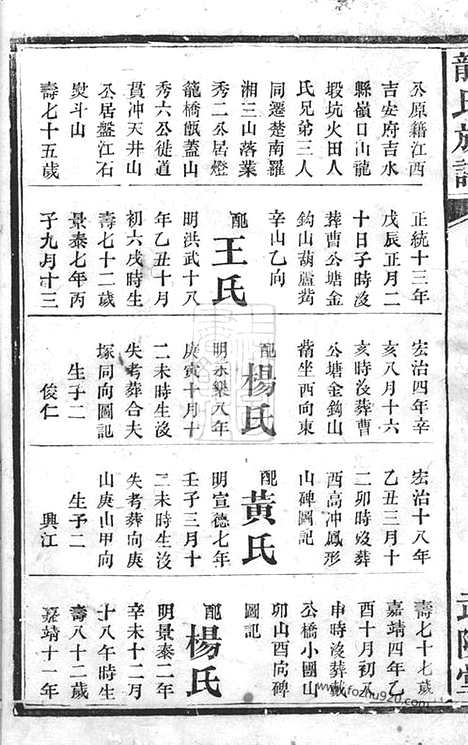 龍氏族譜
公原籍江西
吉安府吉水
縣嶺口山龍
塅坑火田人
氏兄弟三人
同遷楚南羅
湘三山落業
秀二公居燈
籠橋甑蓋山
秀六公徙道
貫冲天井山
公居盤江石
熨斗山
壽七十五歲
正統十三年
戊辰正月二
十日子時沒
葬曹公塘金
鈎山葫蘆觜
辛山乙向
配王氏
明洪武十八
年乙丑十月
初六戌時生
壽七十二歲
景泰七年丙
子九月十三
宏治四年辛
亥八月十六
亥時沒葬曹
公塘金鈎山
觜坐西向東
配楊氏
明永樂八年
庚寅十月十
二未時生沒
失考葬合夫
塚同向圖記
生子二
俊仁
宏治十八年
乙丑三月十
二卯時歿葬
西高冲鳳形
山碑圖記
配黃氏
明宣德七年
壬子三月十
二未時生沒
失考葬向庚
山庚山甲向
生子二
興江
武陵堂
壽七十七歲
嘉靖四年乙
酉十月初八
申時沒葬戴
公橋小圓山
卯山酉向碑
圖記
配楊氏
明景泰二年
辛未十二月
十八年時生
壽八十二歲
嘉靖十一年
www.fozhu920.com